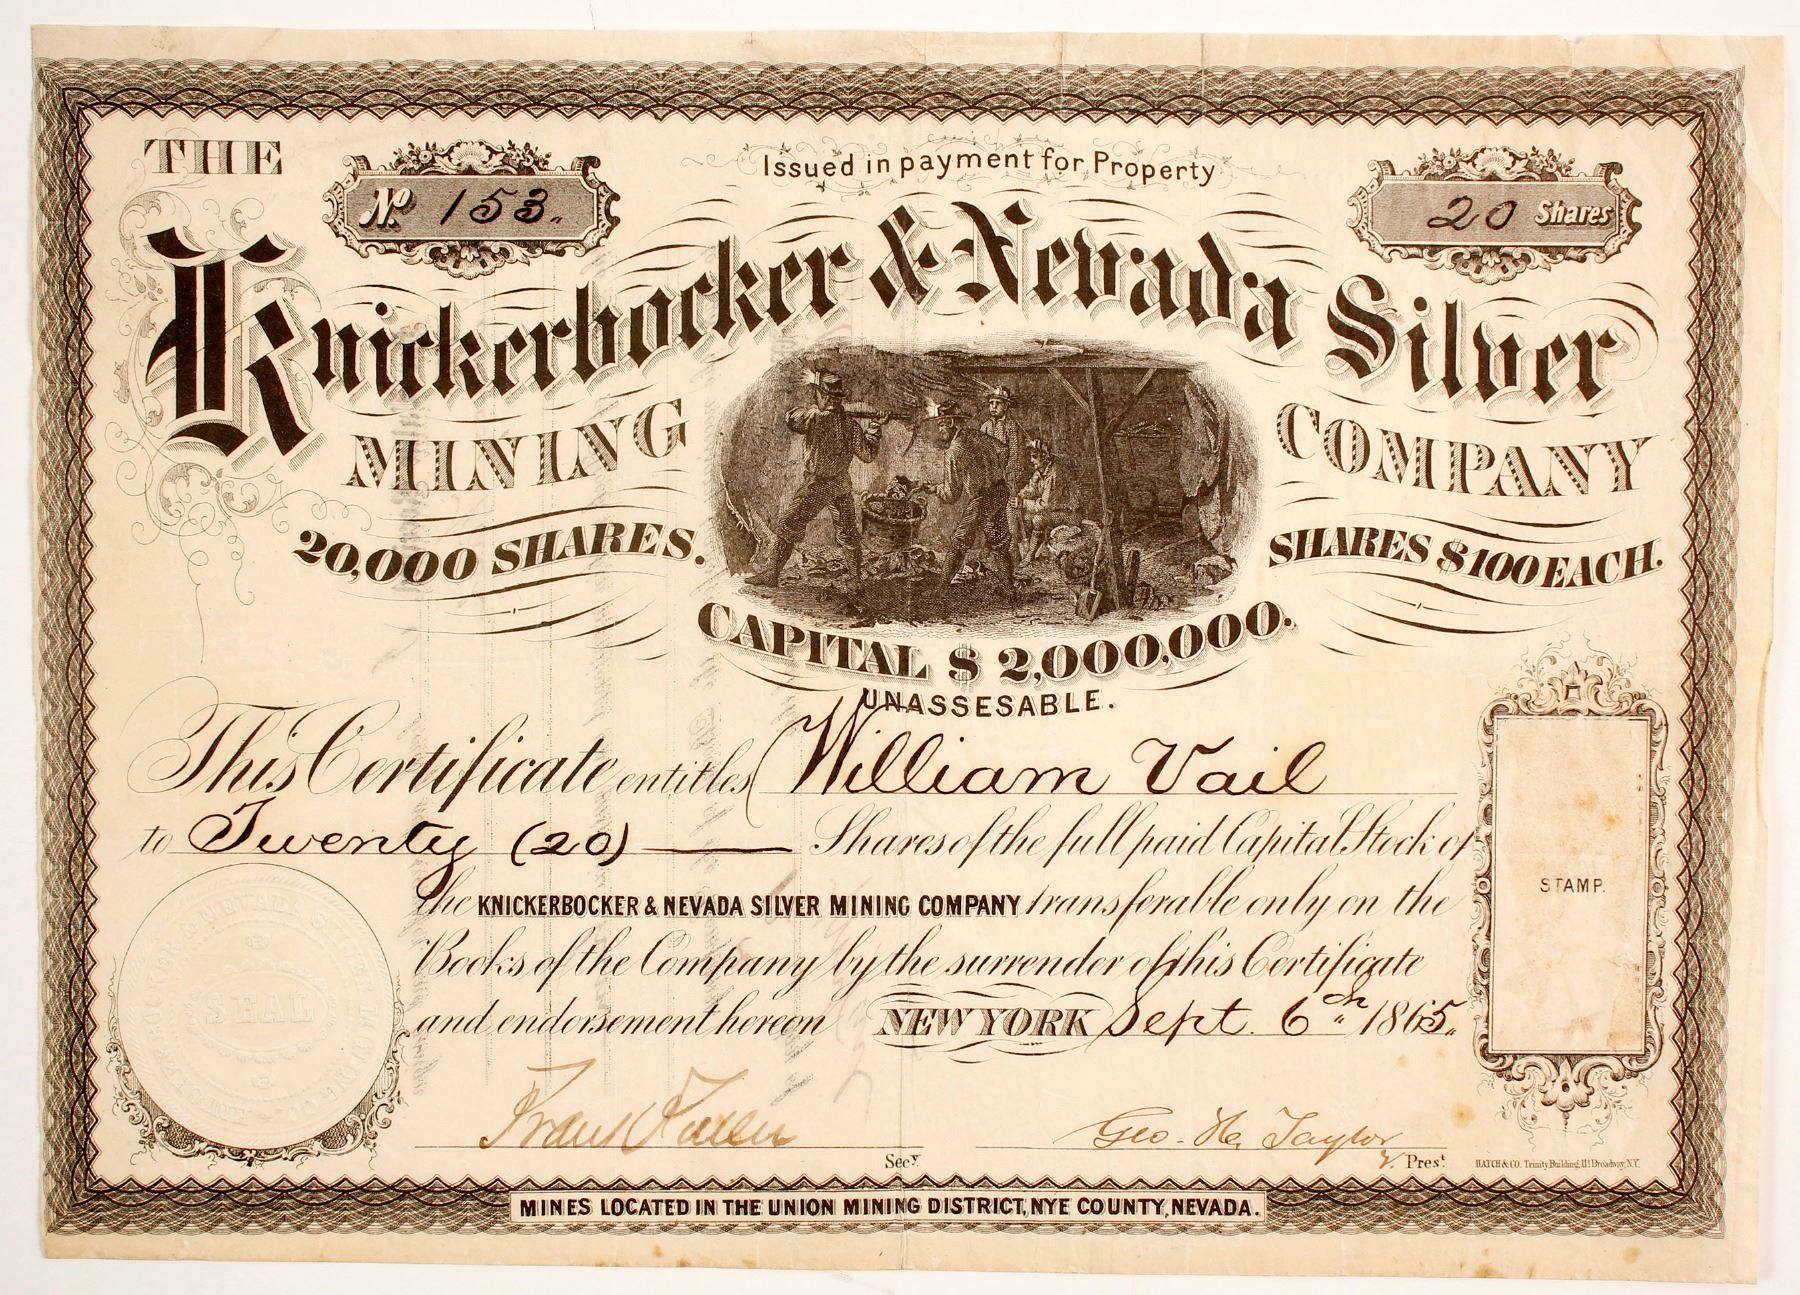 THE
Nº 153.
Issued in payment for Property
20 Shares
Knickerbocker & Nevada Silver
MINING COMPANY
20,000 SHARES. SHARES $100 EACH.
CAPITAL $2,000,000.
UNASSESABLE.
This Certificate entitles William Vail
to Twenty (20) Shares of the full paid Capital Stock of
the KNICKERBOCKER & NEVADA SILVER MINING COMPANY transferable only on the
Books of the Company by the surrender of this Certificate
and endorsement hereon NEW YORK Sept. 6th 1865.
STAMP.
SEAL
Frank
Secy.
Geo. H. Taylor
V. Prest
HATCH & CO. Trinity Building, 111 Broadway, N.Y.
MINES LOCATED IN THE UNION MINING DISTRICT, NYE COUNTY, NEVADA.